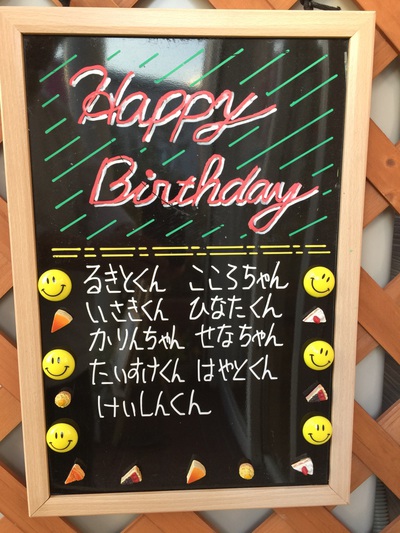 Happy
Birthday
るきとくん こころちゃん
いさきくん ひなたくん
かりんちゃん せなちゃん
たいすけくん はやとくん
けいしんくん